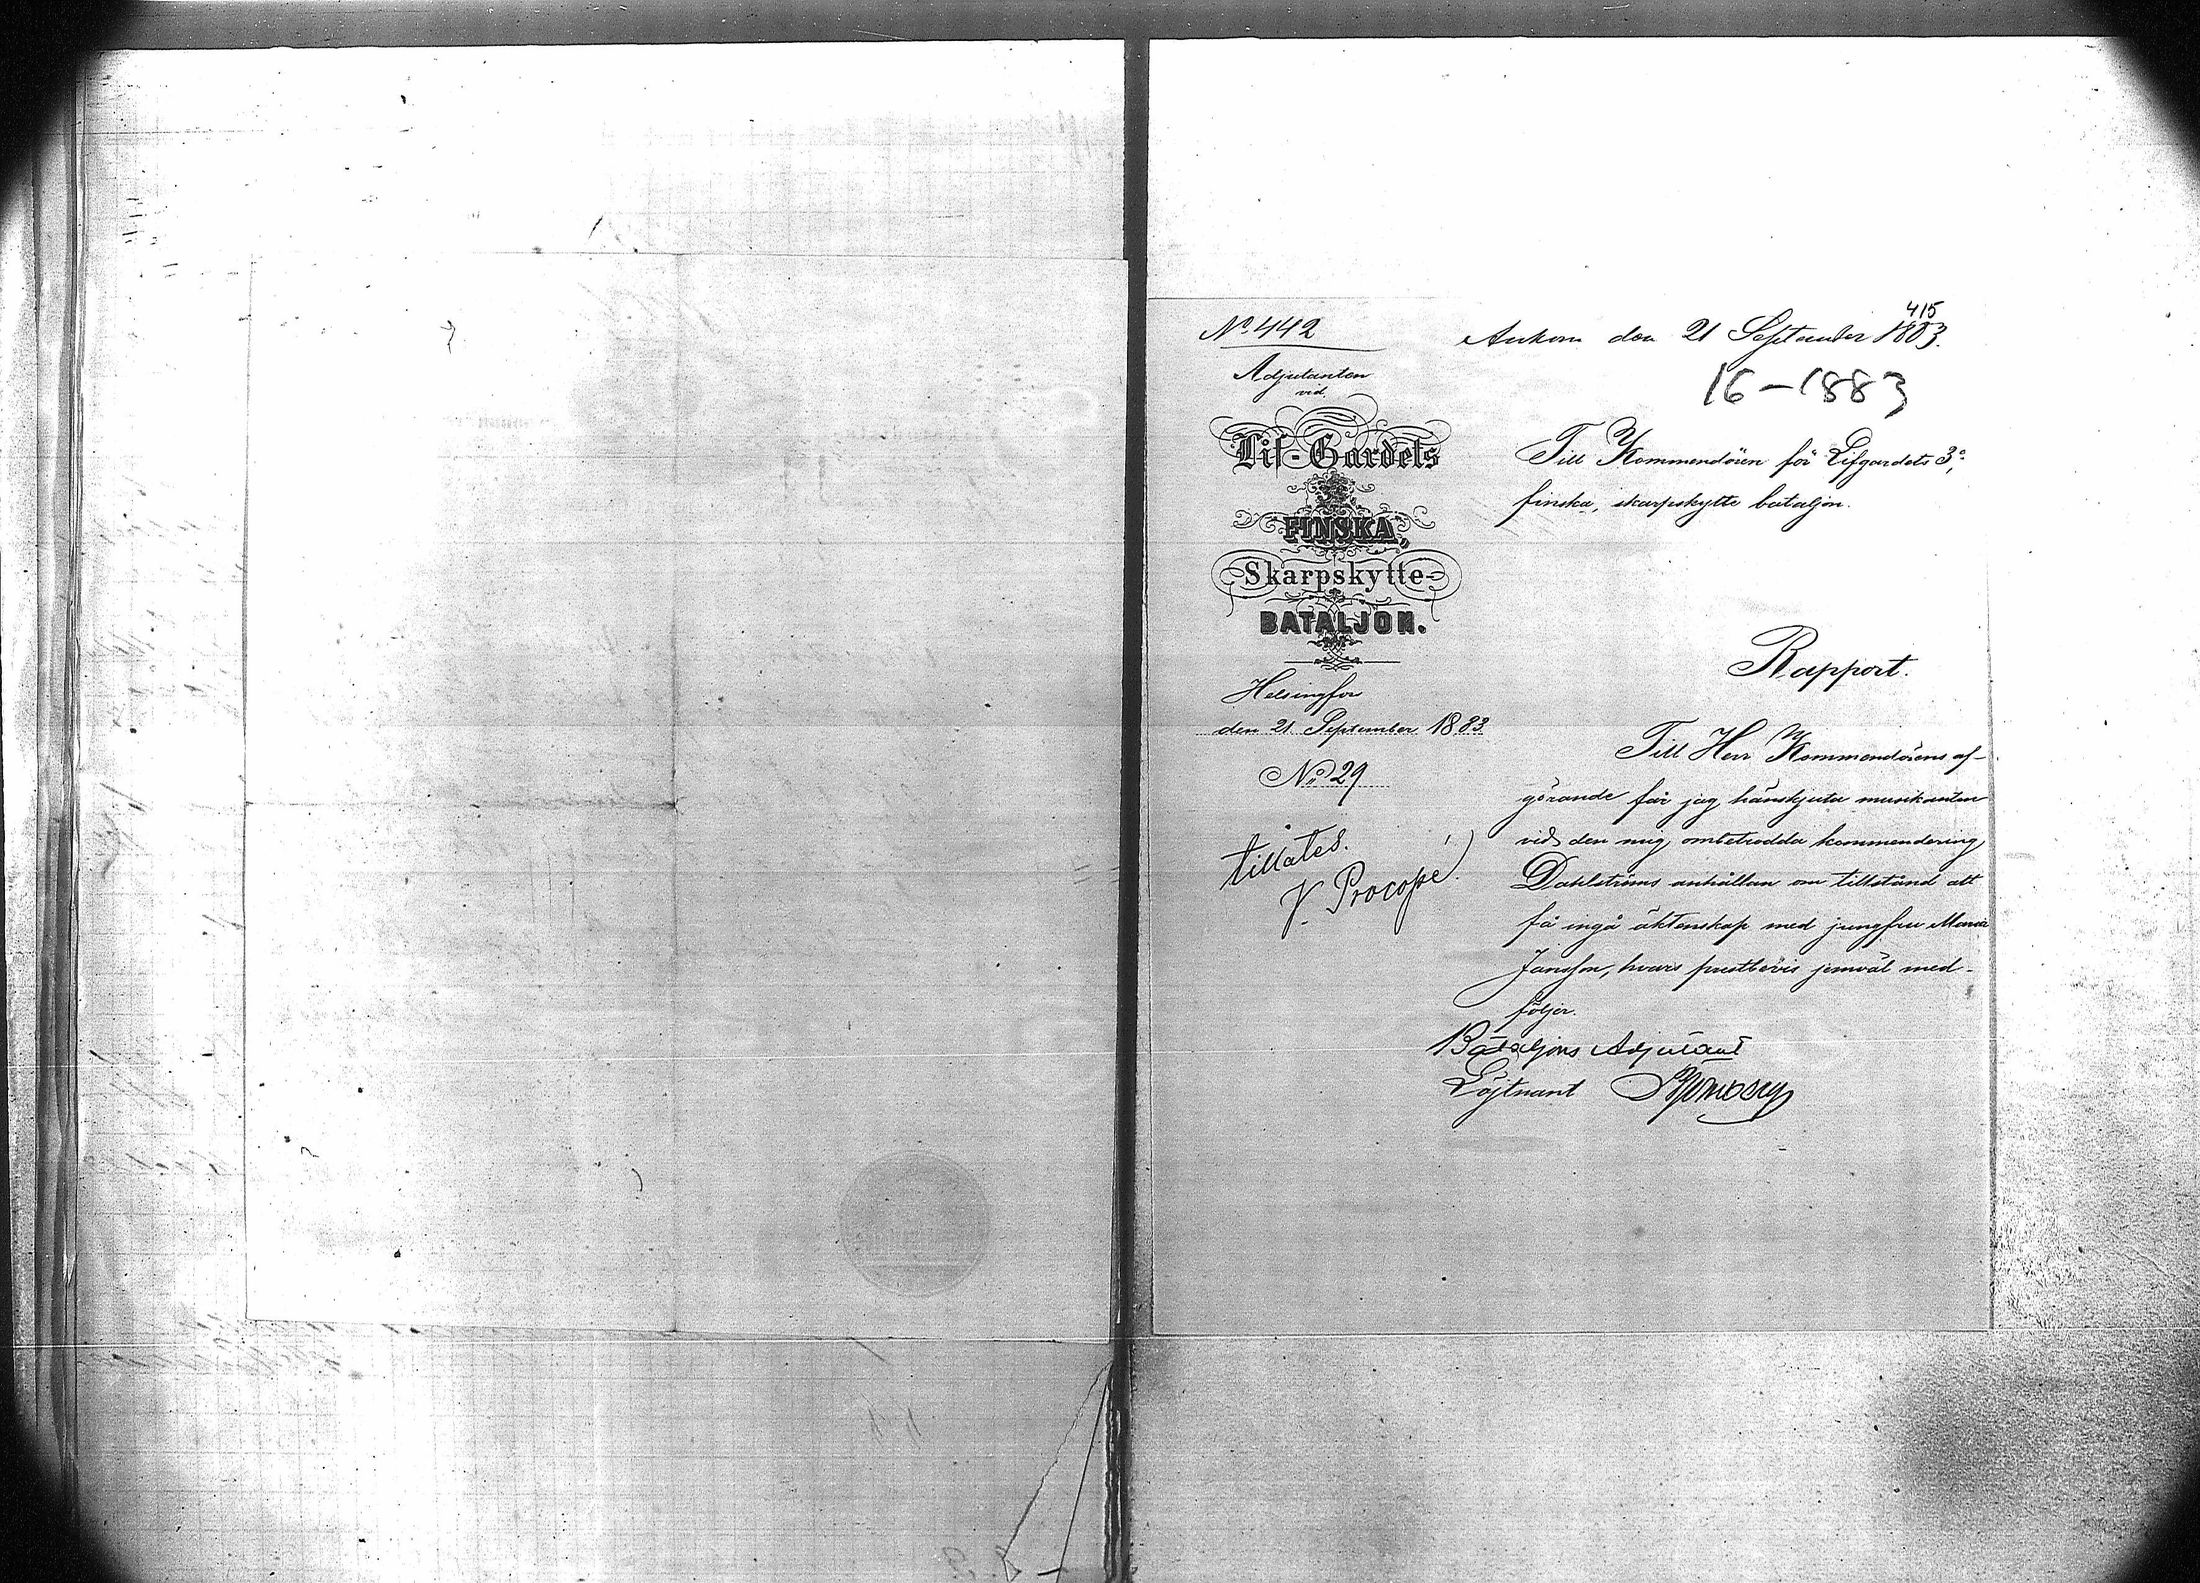 415
No 442
Ankom den 21 September 1883.
16-1883
Adjutanten
vid
Lif-Gardets
FINSKA,
Skarpskytte-
BATALJON.
Helsingfors
den 21 September 1883
No 29
tillåtes.
V. Procopé
Till Kommendören för Lifgardets 3e
finska, skarpskytte bataljon.
Rapport.
Till Herr Kommendörens af-
görande får jag hänskjuta musikanten
vid den mig ombetrodda kommendering
Dahlströms anhållan om tillstånd att
få ingå äktenskap med jungfru Maria
Jansson, hvars prestbevis jemväl med-
följer.
Bataljons Adjutant
Löjtnant